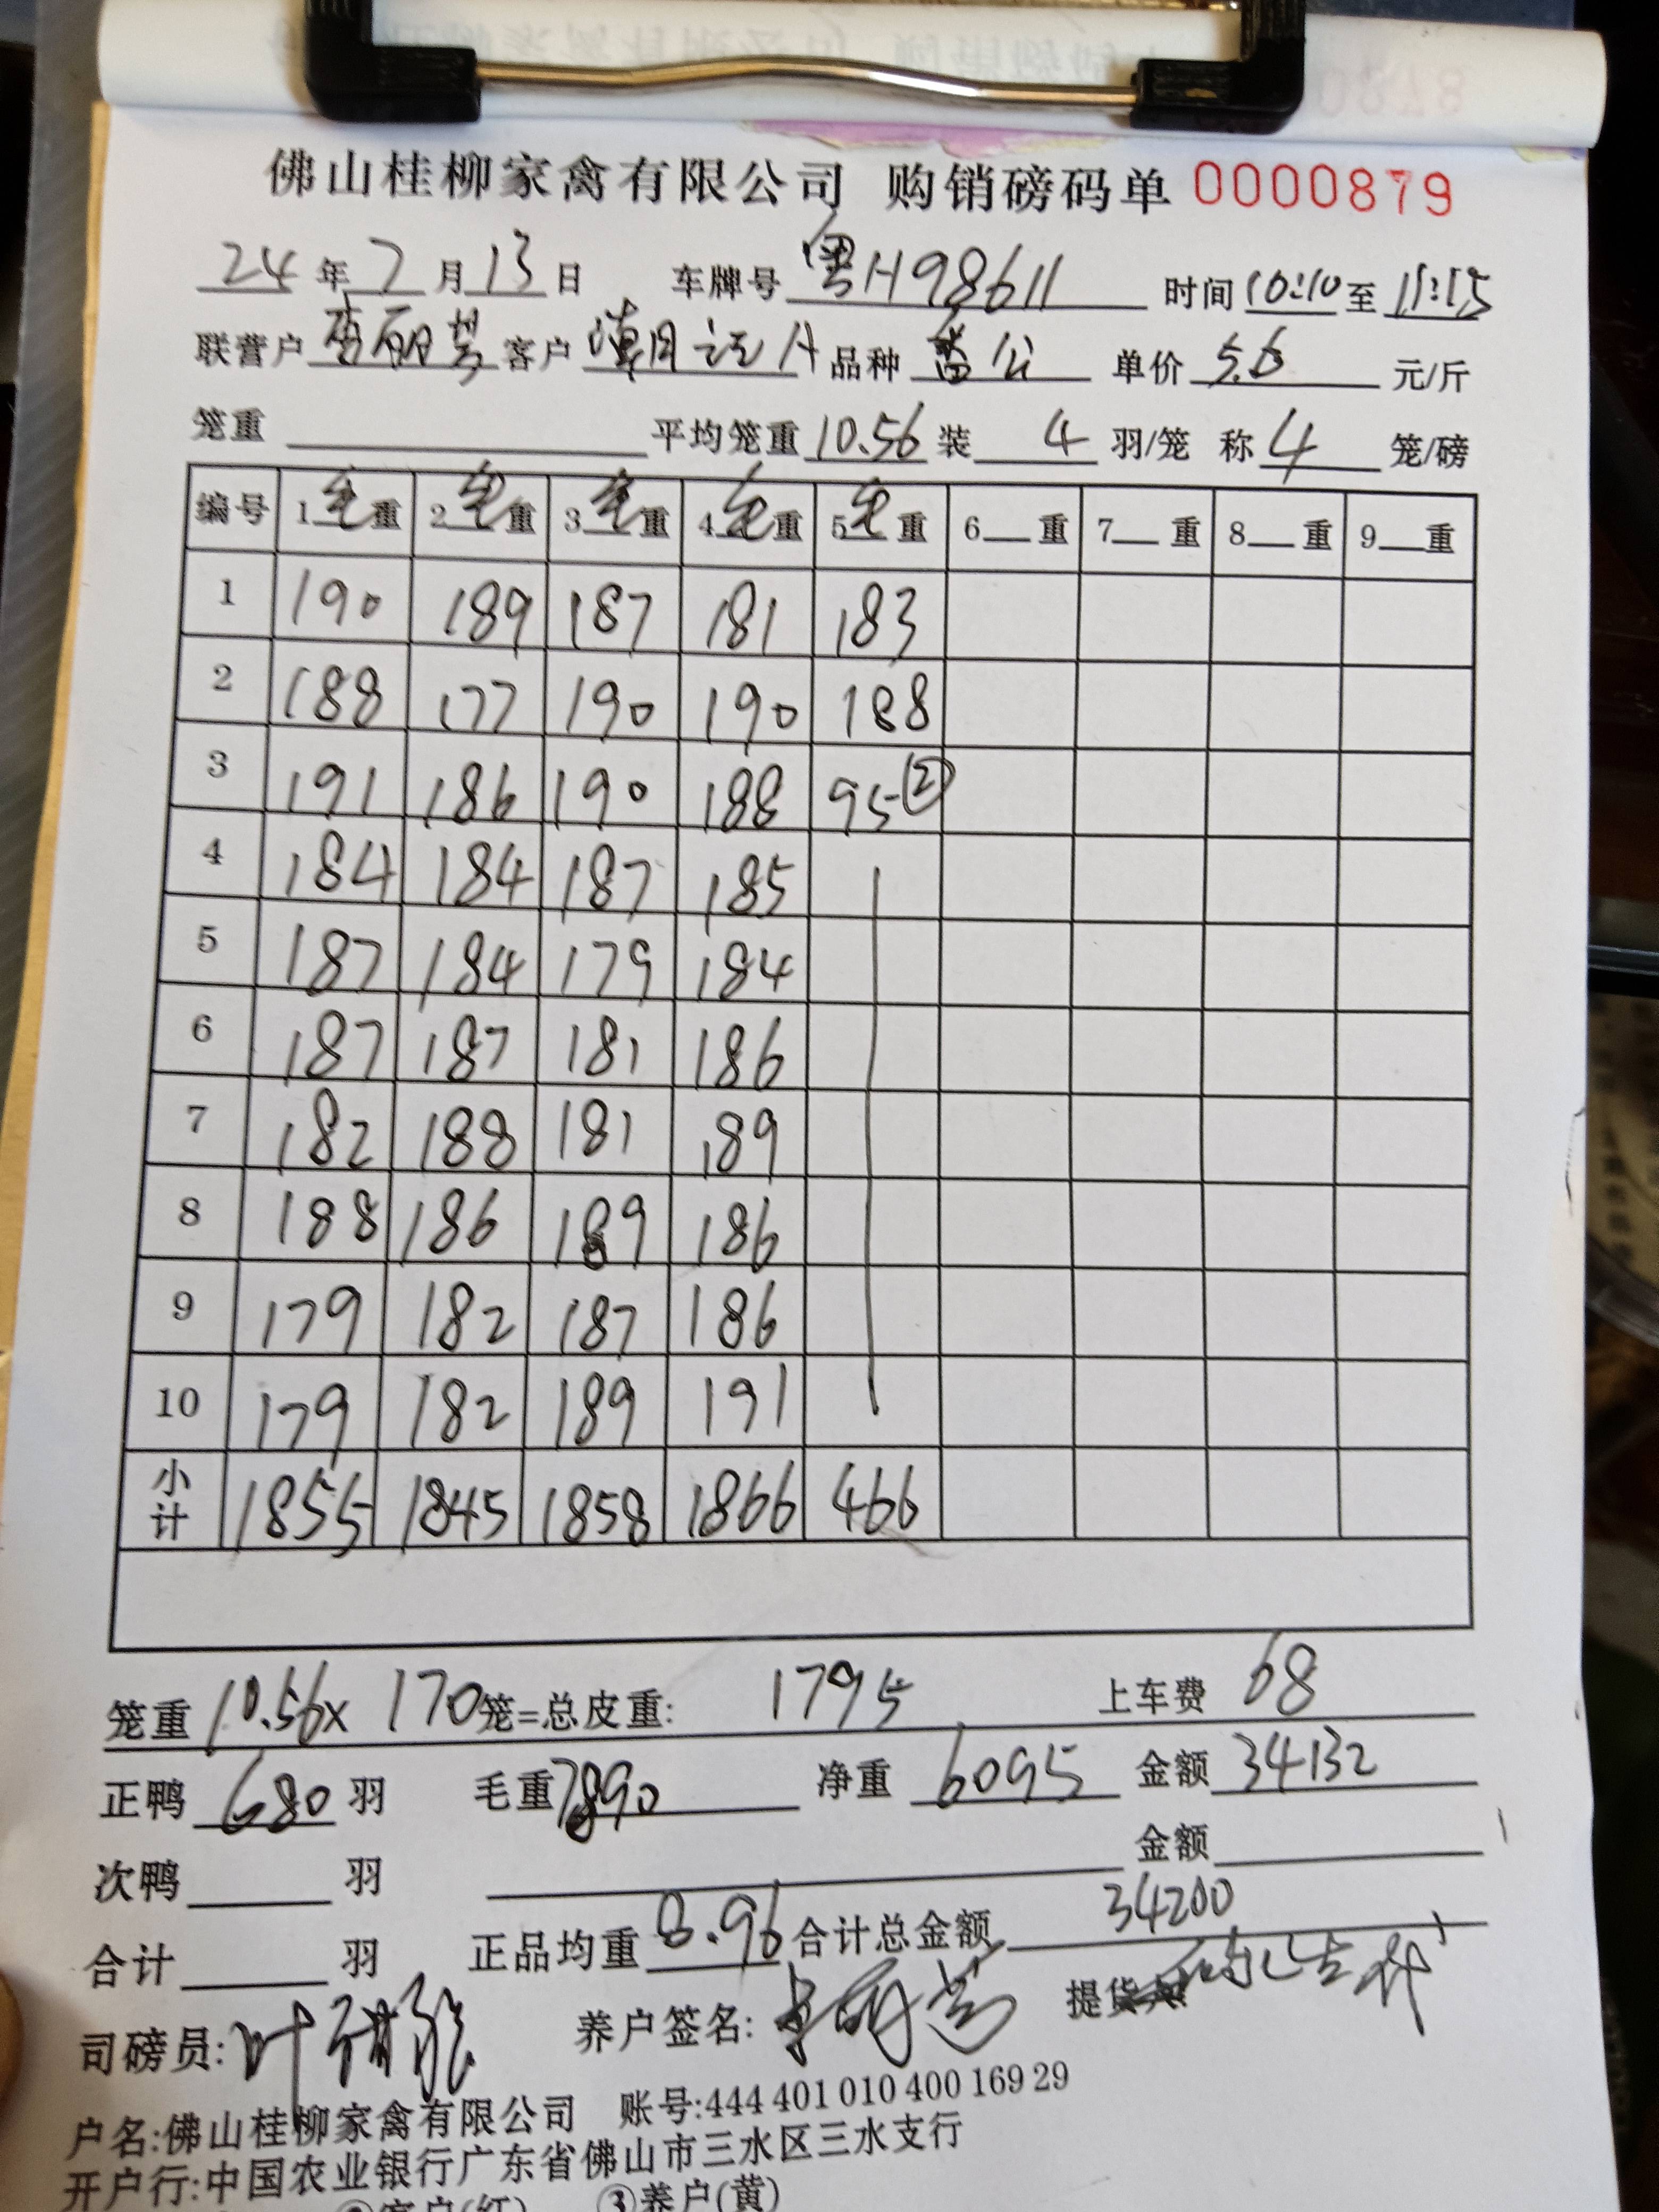 佛山桂柳家禽有限公司 购销磅码单 0000879
24年7月13日 车牌号 粤H98611 时间10:10至11:15
联营户 客户 品种 公 单价 5.6 元/斤
笼重 平均笼重 10.56 装 4 羽/笼 称 4 笼/磅
编号 1毛重 2毛重 3毛重 4毛重 5毛重 6 重 7 重 8 重 9 重
1 190 189 187 181 183
2 188 177 190 190 188
3 191 186 190 188 95②
4 184 184 187 185
5 187 184 179 184
6 187 187 181 186
7 182 188 181 189
8 188 186 189 186
9 179 182 187 186
10 179 182 189 191
小计 1855 1845 1858 1866 466
笼重 10.56× 170笼=总皮重: 1795 上车费 68
正鸭 680 羽 毛重 7890 净重 6095 金额 34132
次鸭 羽 金额
合计 羽 正品均重 8.96 合计总金额 34200
司磅员: 养户签名: 提货
户名:佛山桂柳家禽有限公司 账号:444 401 010 400 169 29
开户行:中国农业银行广东省佛山市三水区三水支行
②客户(红) ③养户(黄)